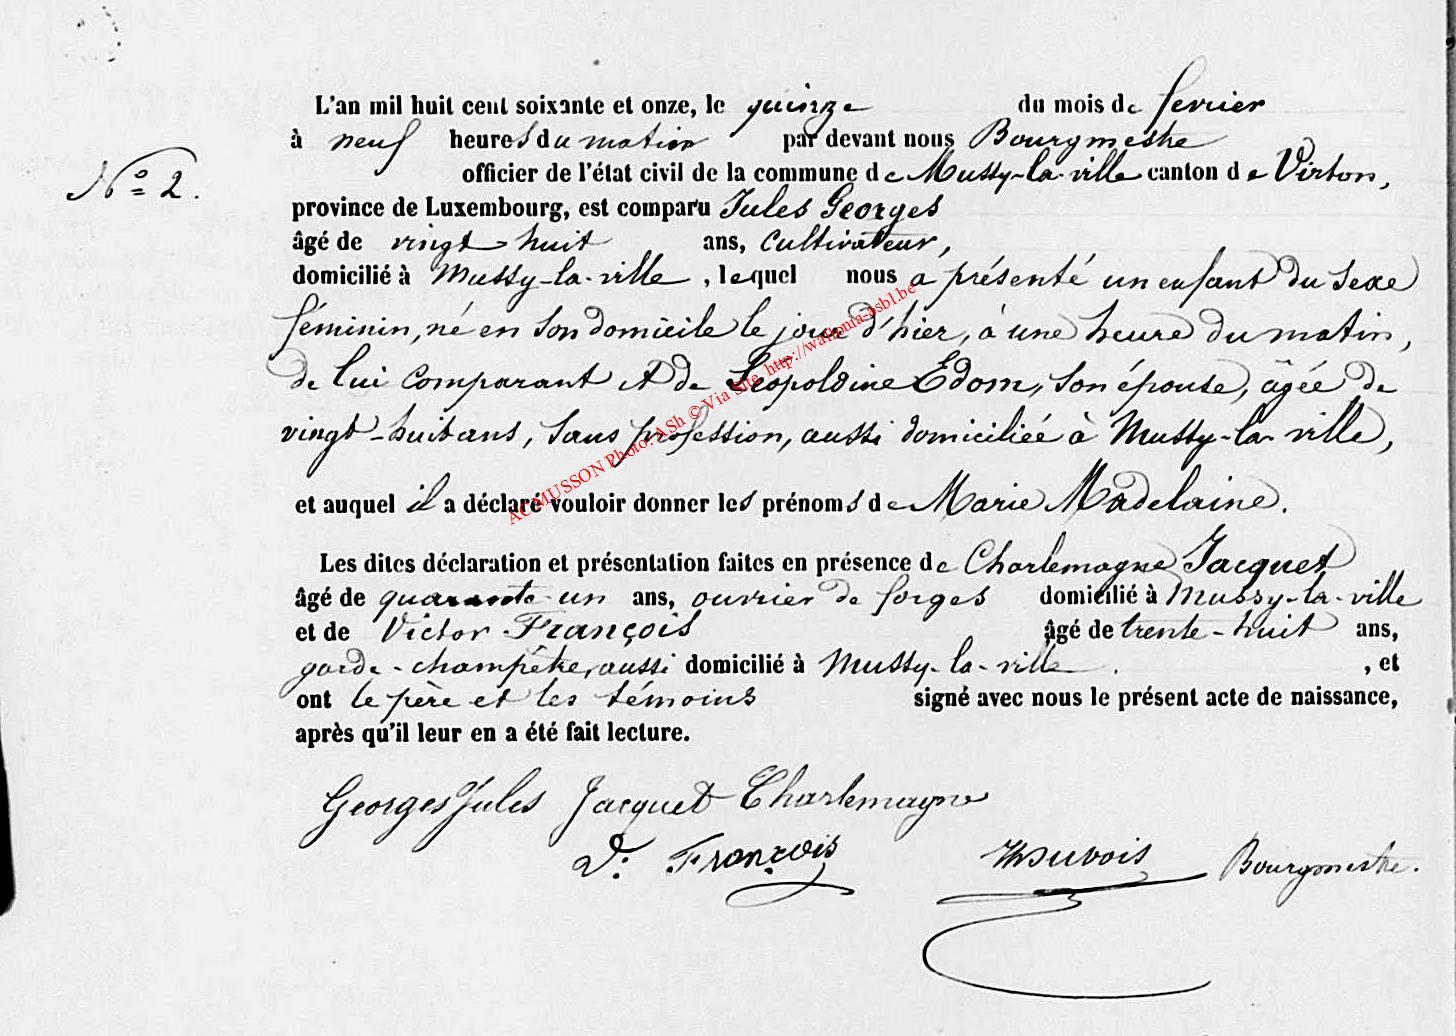 L'an mil huit cent soixante et onze, le quinze du mois de fevrier
à neuf heures du matin par devant nous Bourgmestre
N° 2.
officier de l'état civil de la commune de Mussy-la-ville canton de Virton,
province de Luxembourg, est comparu Jules Georges
âgé de vingt huit ans, cultivateur,
domicilié à Mussy-la-ville, lequel nous a présenté un enfant du sexe
féminin, né en son domicile le jour d'hier, à une heure du matin,
de lui comparant et de Léopoldine Edom, son épouse, âgée de
vingt-huit ans, sans profession, aussi domiciliée à Mussy-la-ville,
et auquel il a déclaré vouloir donner les prénoms de Marie Madelaine.
Les dites déclaration et présentation faites en présence de Charlemagne Jacquet
âgé de quarante-un ans, ouvrier de forges domicilié à Mussy-la-ville
et de Victor François âgé de trente-huit ans,
garde-champêtre, aussi domicilié à Mussy-la-ville , et
ont le père et les témoins signé avec nous le présent acte de naissance,
après qu'il leur en a été fait lecture.
Georges Jules Jacquet Charlemagne
V. François Bourgmestre.
AC MUSSON Photo: ASh © Via Site http://wallonia-asbl.be